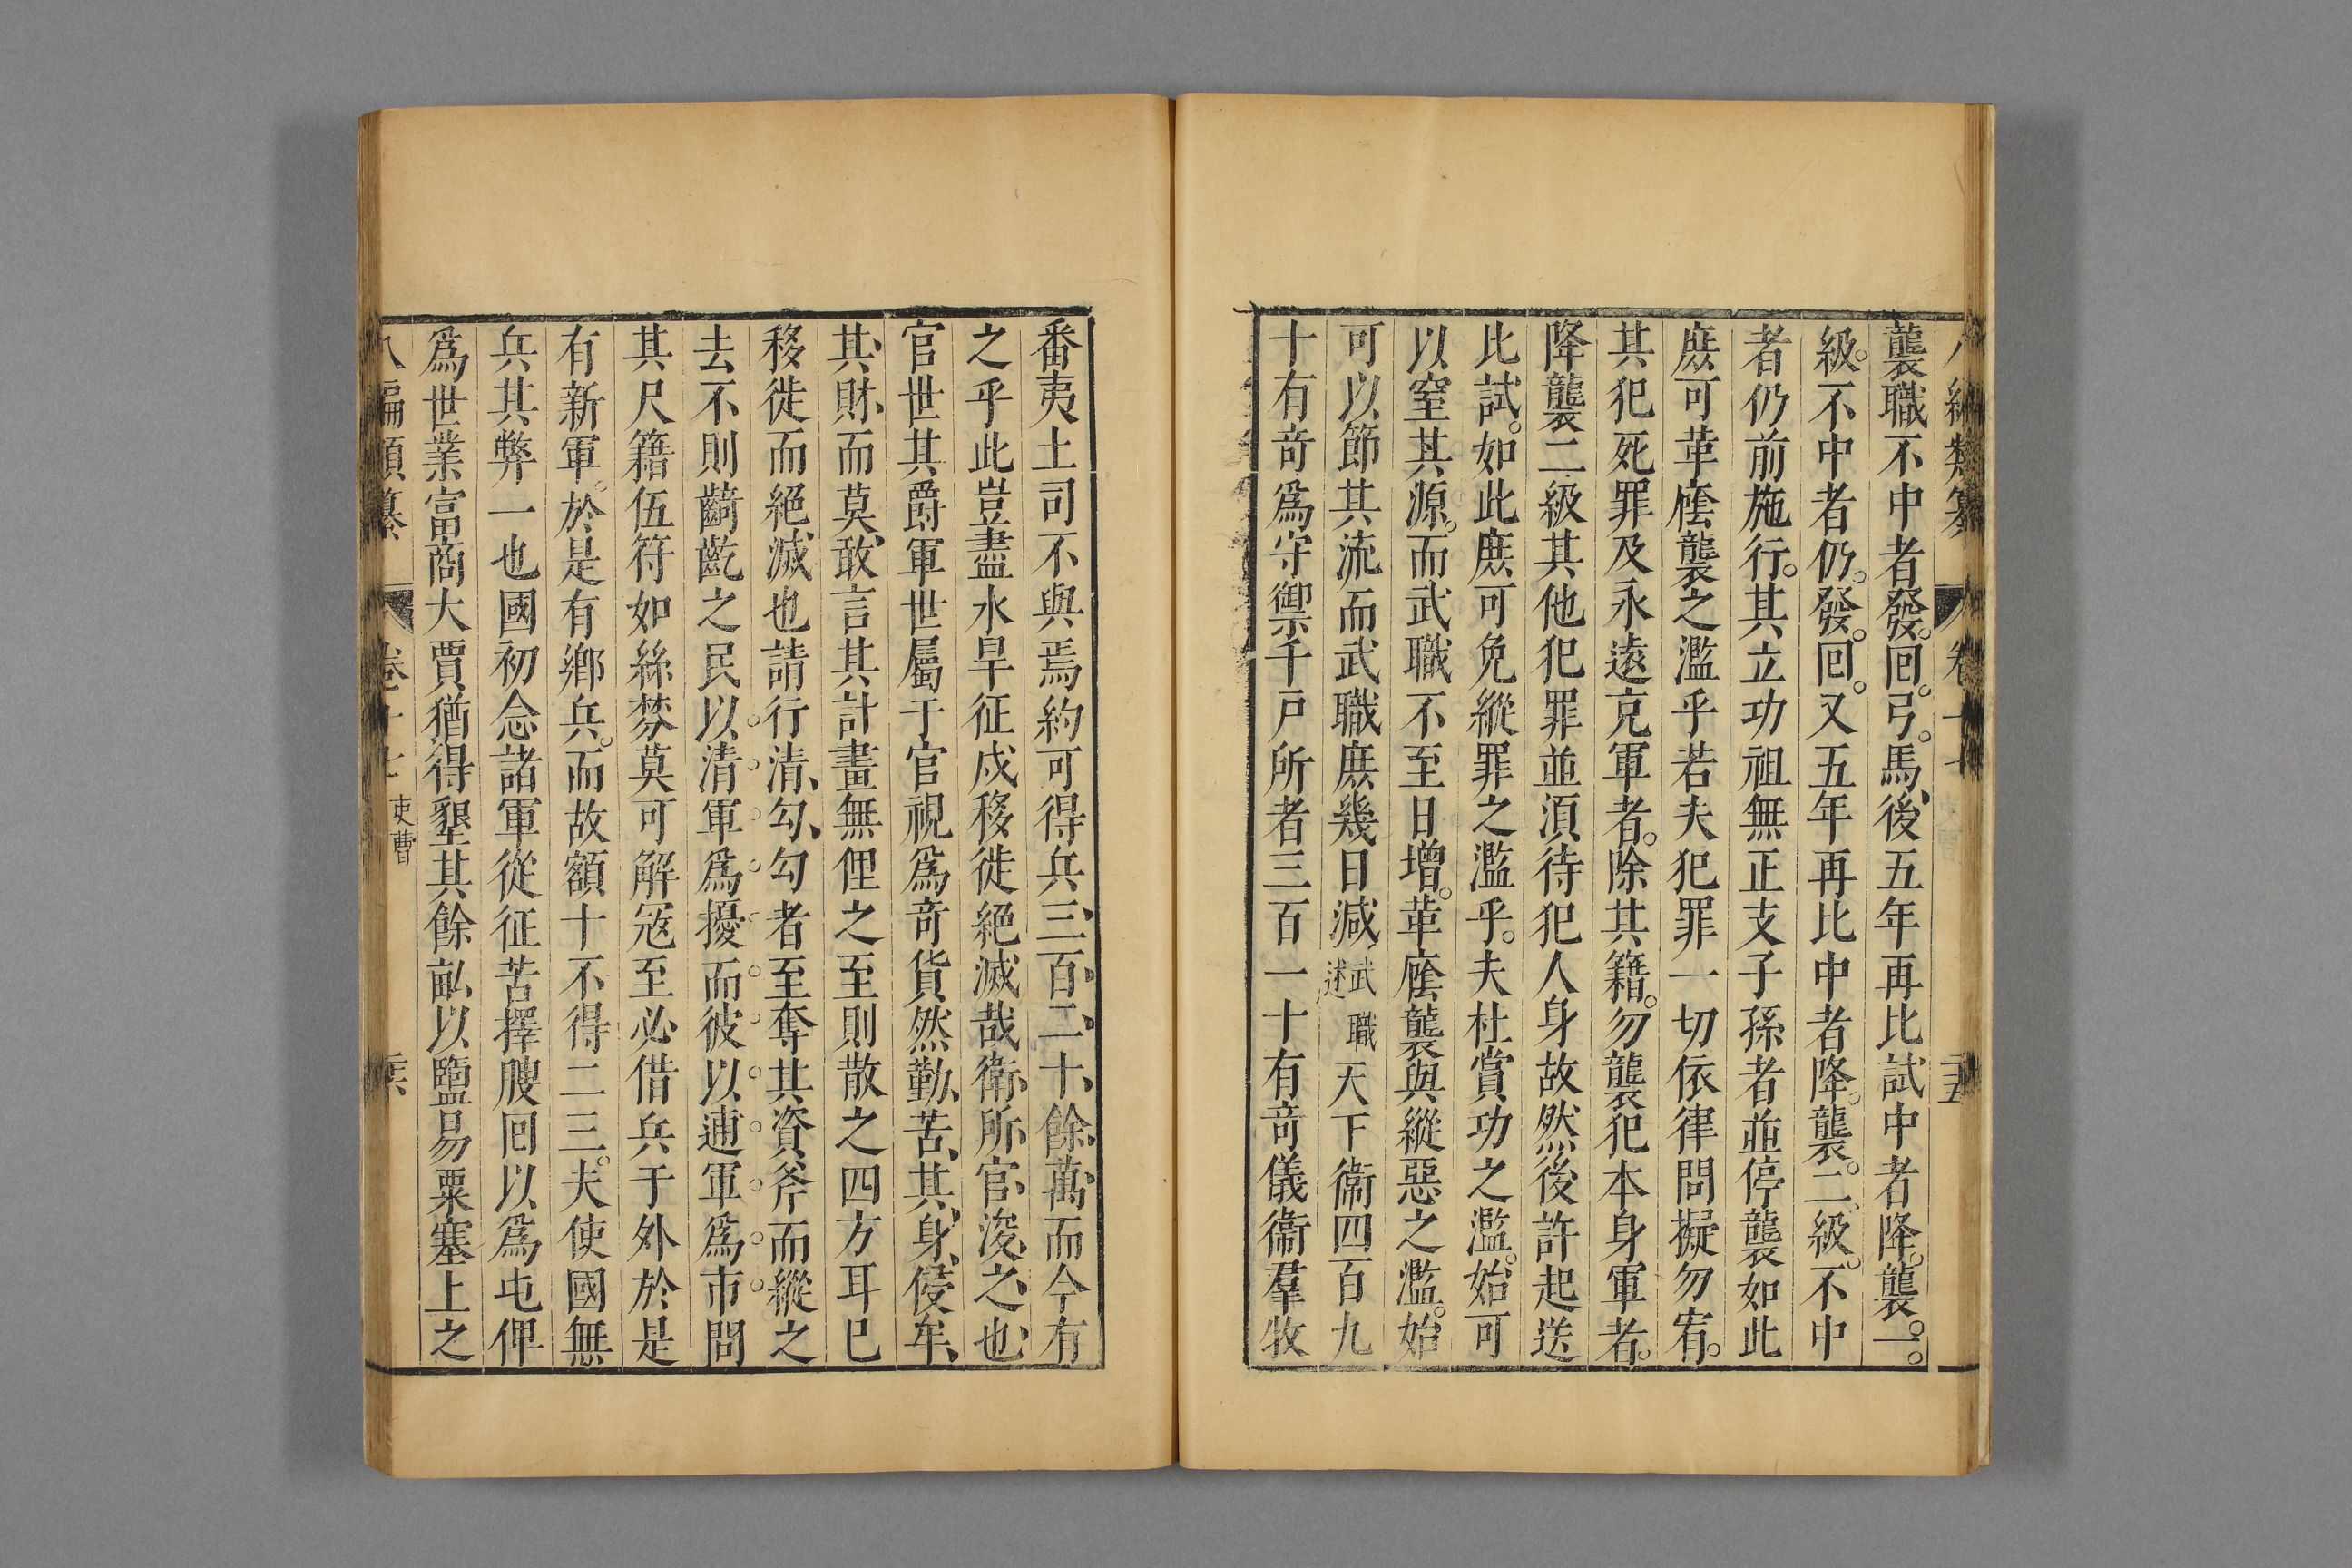 襲職不中者發回弓馬後五年再比試中者降襲一
級不中者仍發回又五年再比中者降襲二級不中
者仍前施行其立功祖無正支子孫者並停襲如此
庶可革廕襲之濫乎若夫犯罪一切依律問擬勿宥
其犯死罪及永遠充軍者除其籍勿襲犯本身軍者
降襲二級其他犯罪並須待犯人身故然後許起送
比試如此庶可免縱罪之濫乎夫杜賞功之濫始可
以窒其源而武職不至日增革廕襲與縱惡之濫始
可以節其流而武職庶幾日減武職述天下衞四百九
十有竒爲守禦千戸所者三百一十有竒儀衞羣牧
番夷土司不與焉約可得兵三百二十餘萬而今有
之乎此豈盡水旱征戍移徙絕滅哉衛所官浚之也
官世其爵軍世屬于官視爲竒貨然勤苦其身侵牟
其財而莫敢言其計畫無俚之至則散之四方耳巳
移徙而絕滅也請行清勾勾者至奪其資斧而縱之
去不則齮齕之民以清軍爲擾而彼以逋軍爲市問
其尺籍伍符如絲棼莫可解冦至必借兵于外於是
有新軍於是有鄉兵而故額十不得二三夫使國無
兵其弊一也國初念諸軍從征苦擇腴囘以爲屯俾
爲世業富商大賈猶得墾其餘畝以鹽易粟塞上之
八編類纂 卷十七 吏曹 二六